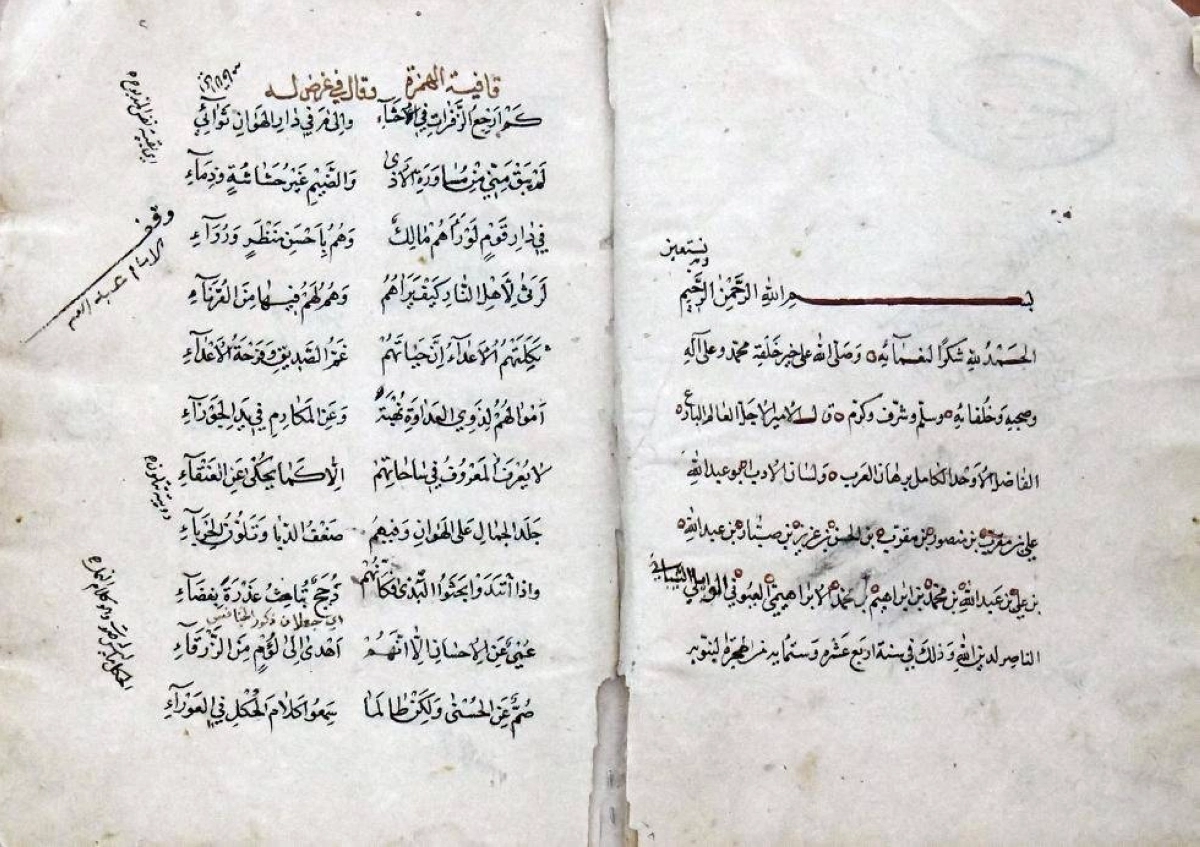 وبه نستعين
بسم الله الرَّحْمٰنِ الرَّحِيمِ
الحَمْدُ لله شكرًا لنعمآئه وَصَلّى الله على خير خَلْقِه محمد وعلى آله
وصحبه وخُلفائه وسلّم وشرف وكرّم قال الامير الاجل العالم البارع
الفاضل الاوحد الكامل برهان العرب ولسان الادب ابو عبدالله
علي بن مقرب بن منصور بن مقرب بن الحسن بن عزيز بن ضبار بن عبدالله
بن علي بن عبدالله بن محمد بن ابراهيم بن محمد الابراهيمي العيوني
الناصر لدين الله وذلك في سنة اربع عشره وستمايه
قافية الهمزة وقال في غرض له
كَمْ ارجعُ الزَّفَراتِ في الاَحْشآءِ والى مَ في دٰارِ الهَوانِ ثَوآئي
لَمْ يَبْقَ مِنّي مِنْ مُسٰاورَةِ الاَذى وَالضَّيْمِ غَيْرُ حُشٰاشَةٍ وَذِمآءِ
في دٰارِ قَومٍ لَوْ رَاٰهُم مٰالِكٌ وَهُمُ بِاَحْسَنِ مَنْظَرٍ وَرُوآءِ
لَرَثى لِاَهْلِ النّارِ كَيْفَ يَرٰاهُم وَهُمُ لَهُمْ فيهٰا مِنَ القُرَنآءِ
ثَكِلَتْهُمُ الاَعْدآءُ اِنَّ حَيٰاتَهُمْ غَمُّ الصَّديقِ وَفَرْحَةُ الاَعْدآءِ
اَموالُهُمْ لِذَوي العَدٰاوَةِ نُهْبَةٌ وَعَنِ المَكٰارِمِ في يَدِ الجَوْزآءِ
لا يُعْرَفُ المَعْرُوفُ في سٰاحٰاتِهم اِلّا كَمٰا يُحْكىٰ عَنِ العَنْقآءِ
جَلَدُ الجِمالِ عَلى الهَوٰانِ وَفيهِمُ ضَعْفُ الدَّبٰا وَتَلَوُّنُ الحِرْبآءِ
واذا اتّدَوا بَحَثوا النَّدى فَكَاَنَّهُم
عُمْيٌ عَنِ الاِحْسٰانِ اِلّا اَنَّهُم اَهْدى اِلىٰ لُؤْمٍ مِنَ الزَّرْقآءِ
صُمٌّ عَنِ الحُسْنى وَلكِنْ طٰالَمٰا سَمِعُوا كَلامَ الحُكْلِ في العَوْرآءِ
وقف
الامام